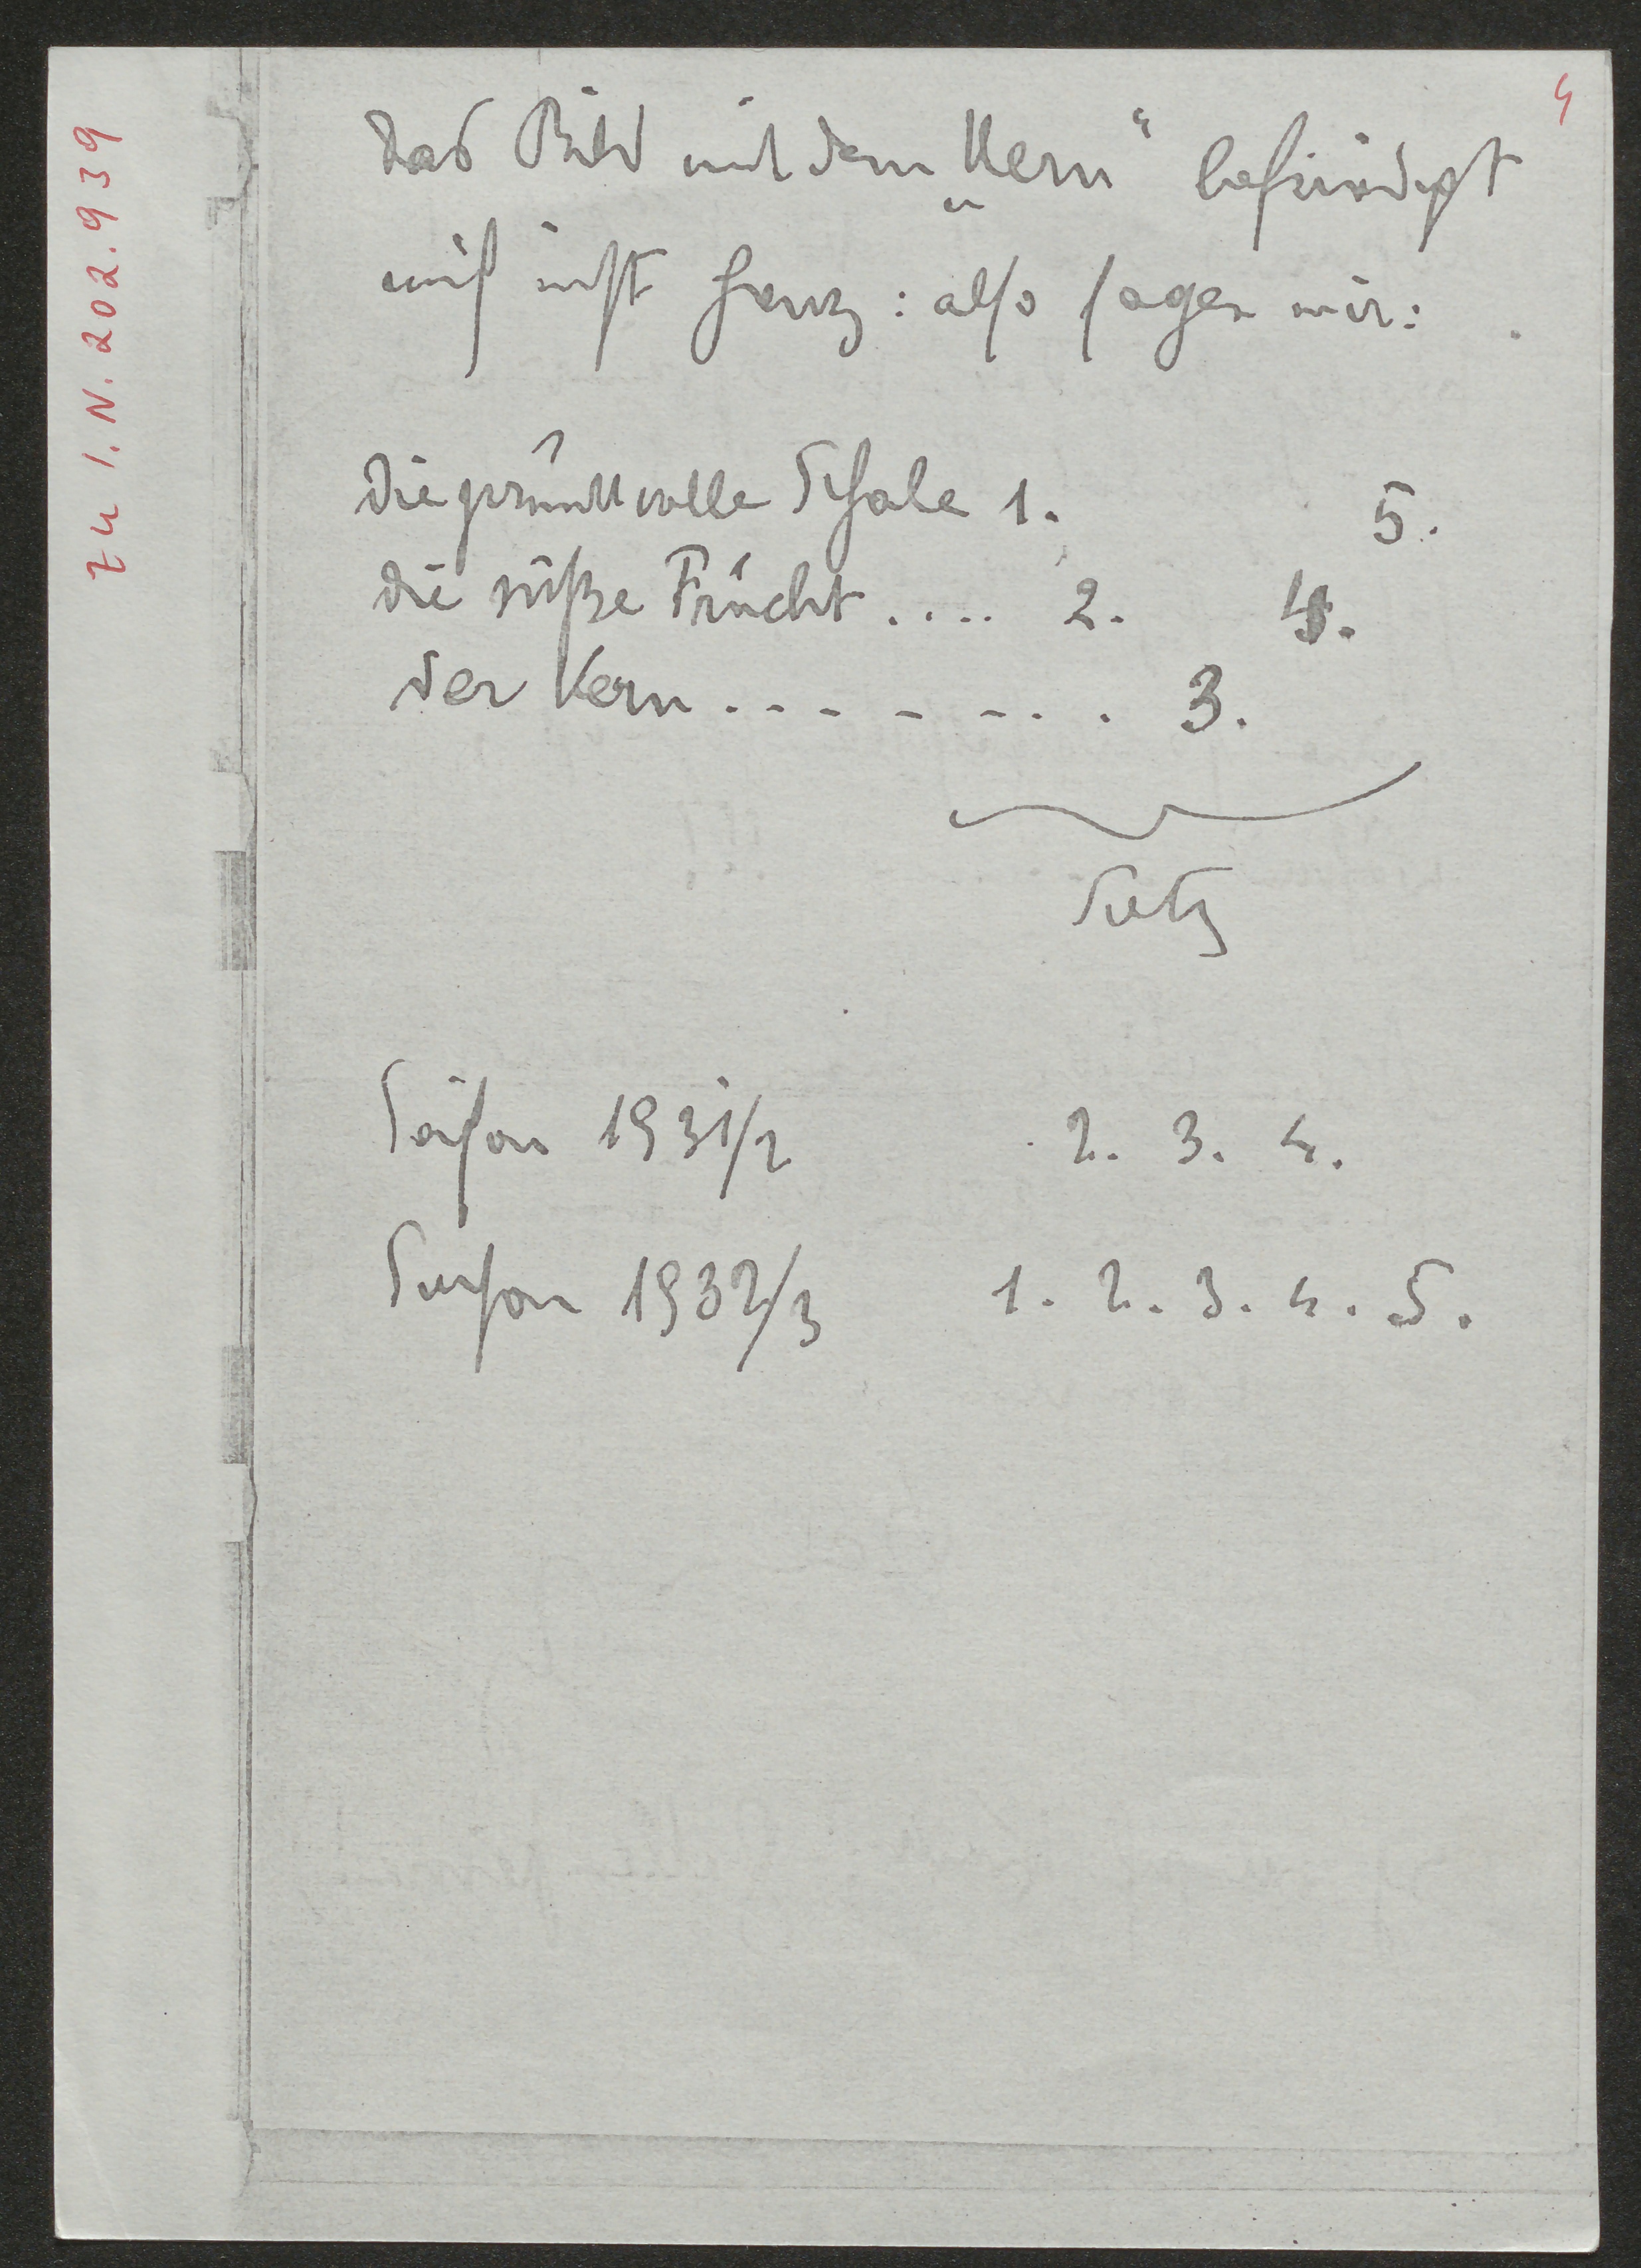 4
zu I.N. 202.939
Das Bild mit dem „Kern“ befriedigt
mich nicht ganz: also sagen wir:
Die prunkvolle Schale 1. 5.
die süße Frucht .... 2. 4.
der Kern ........ 3.
Satz
Saison 1931/2 2. 3. 4.
Saison 1932/3 1. 2. 3. 4. 5.